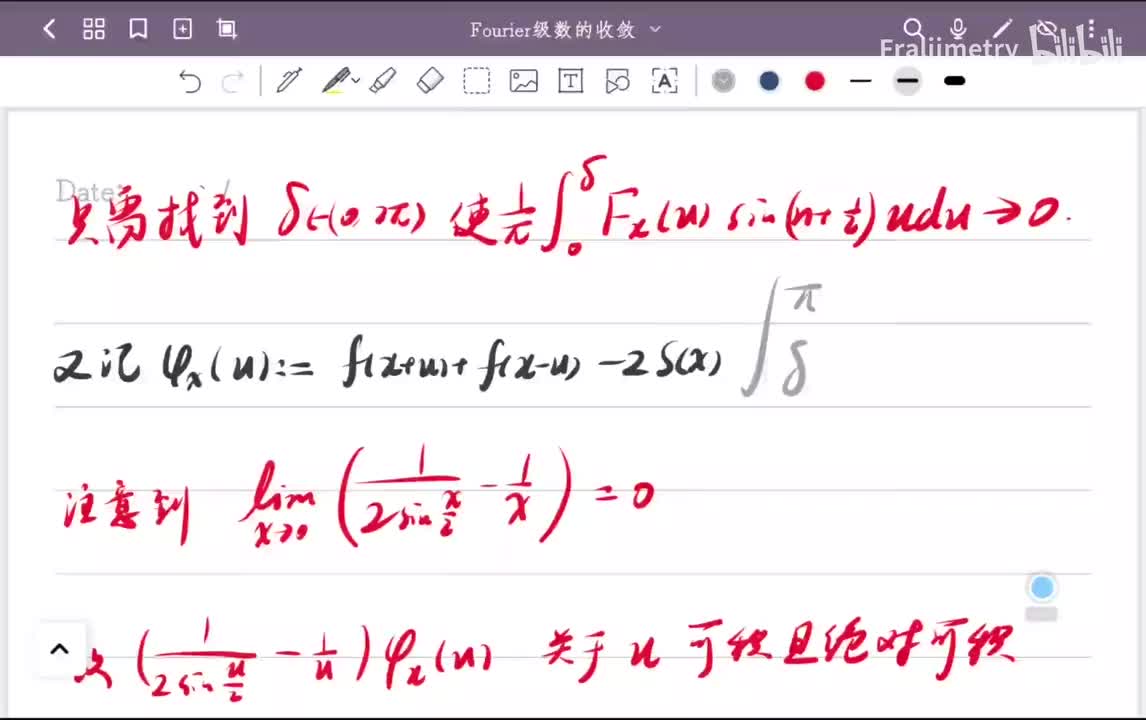 Fourier级数的收敛
Fraljimetry bilibili
Date:
只需找到 δ∈(0,π) 使 1/π ∫_0^δ F_x(u) sin(n+1/2)u du → 0.
又记 φ_x(u) := f(x+u)+f(x-u) -2S(x) ∫_δ^π
注意到 lim_{x→0} (1/(2sin x/2) - 1/x) = 0
(1/(2sin u/2) - 1/u) φ_x(u) 关于 u 可积且绝对可积